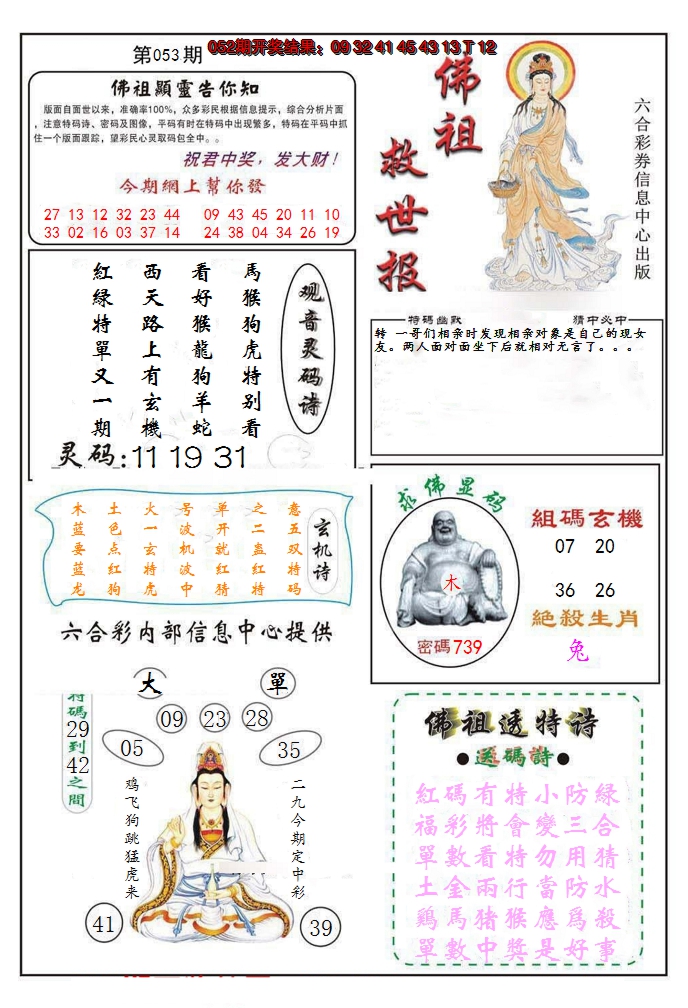 第053期
052期开奖结果：09 32 41 45 43 13 T 12
佛祖顯靈告你知
版面自面世以来，准确率100%，众多彩民根据信息提示，综合分析片面
，注意特码诗、密码及图像，平码有时在特码中出现繁多，特码在平码中抓
住一个版面跟踪，望彩民心灵取码包全中。。
祝君中奖，发大财！
今期網上幫你發
27 13 12 32 23 44 09 43 45 20 11 10
33 02 16 03 37 14 24 38 04 34 26 19
佛祖
救世报
六合彩券信息中心出版
观音灵码诗
馬猴狗虎特别看
看好猴龍狗羊蛇
西天路上有玄機
紅綠特單又一期
灵码:11 19 31
特碼幽默
猜中必中
转 一哥们相亲时发现相亲对象是自己的现女
友。两人面对面坐下后就相对无言了。。。
玄机诗
意五双特码
之二蛊红特
单开就红猜
号波机波中
火一玄特虎
土色点红狗
木蓝要蓝龙
六合彩内部信息中心提供
求佛显码
木
密碼739
組碼玄機
07 20
36 26
絶殺生肖
兔
大
單
特碼29到42之間
09
23
28
05
35
鸡飞狗跳猛虎来
二九今期定中彩
41
39
佛祖透特诗
●送碼詩●
紅碼有特小防緑
福彩將會變三合
單數看特勿用猜
土金兩行當防水
鷄馬猪猴應爲殺
單數中獎是好事